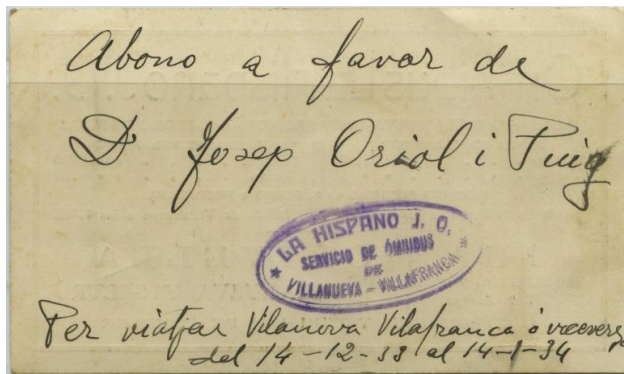 Abono a favor de
D Josep Oriol i Puig
LA HISPANO J. O.
SERVICIO DE ÓMNIBUS
DE
VILLANUEVA - VILLAFRANCA
Per viatjar Vilanova Vilafranca ó viceversa
del 14-12-33 al 14-1-34